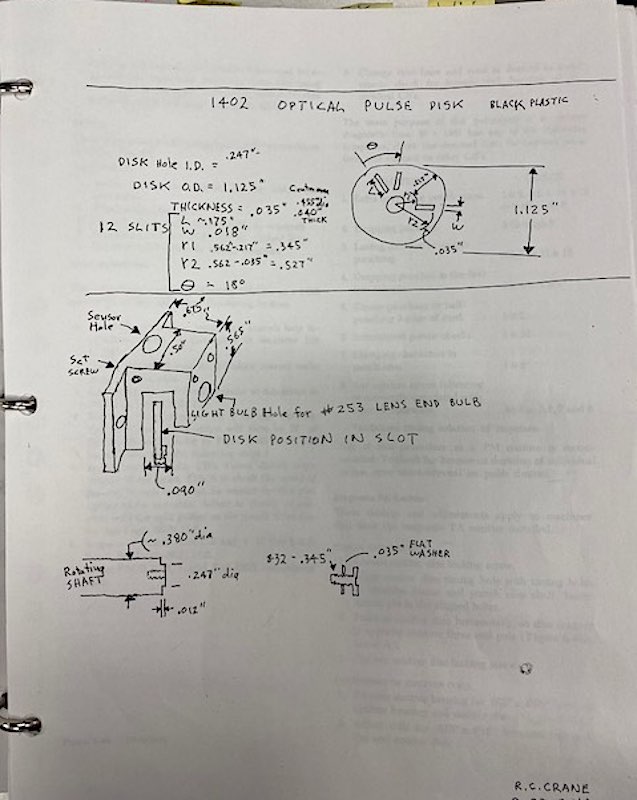 1402 OPTICAL PULSE DISK BLACK PLASTIC
DISK Hole I.D. = .247"
DISK O.D. = 1.125"
THICKNESS = .035"
.455" dia
.040" THICK
12 SLITS
L ~.175"
W .018"
r1 .562-.217" = .345"
r2 .562-.035" = .527"
Θ = 18°
Θ
L
.217"
r1
r2
W
.035"
1.125"
.675"
Sensor Hole
.502
.565"
Set SCREW
LIGHT BULB Hole for #253 LENS END BULB
DISK POSITION IN SLOT
.090"
~ .380" dia
Rotating SHAFT
.247" dia
.012"
.345"
.035" FLAT WASHER
R.C. CRANE